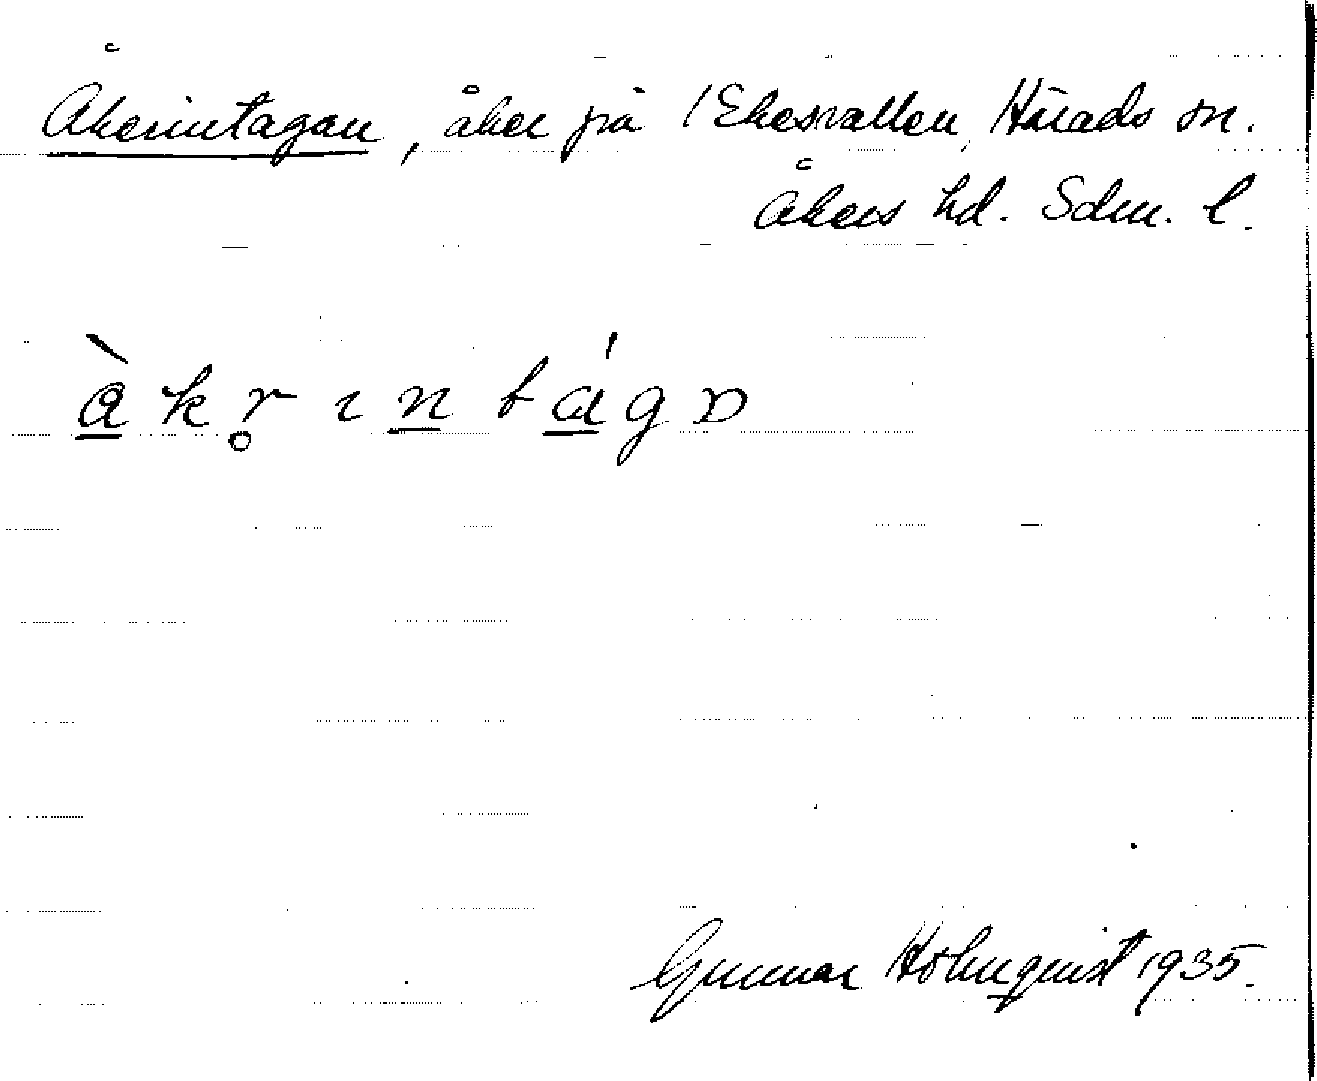 Åkerintagan, åker på 1 Ekesvallen, Härads sn.
Åkers hd. Sdm. l.
ὰkr̥ ı n tágɒ
Gunnar Holmquist 1935.